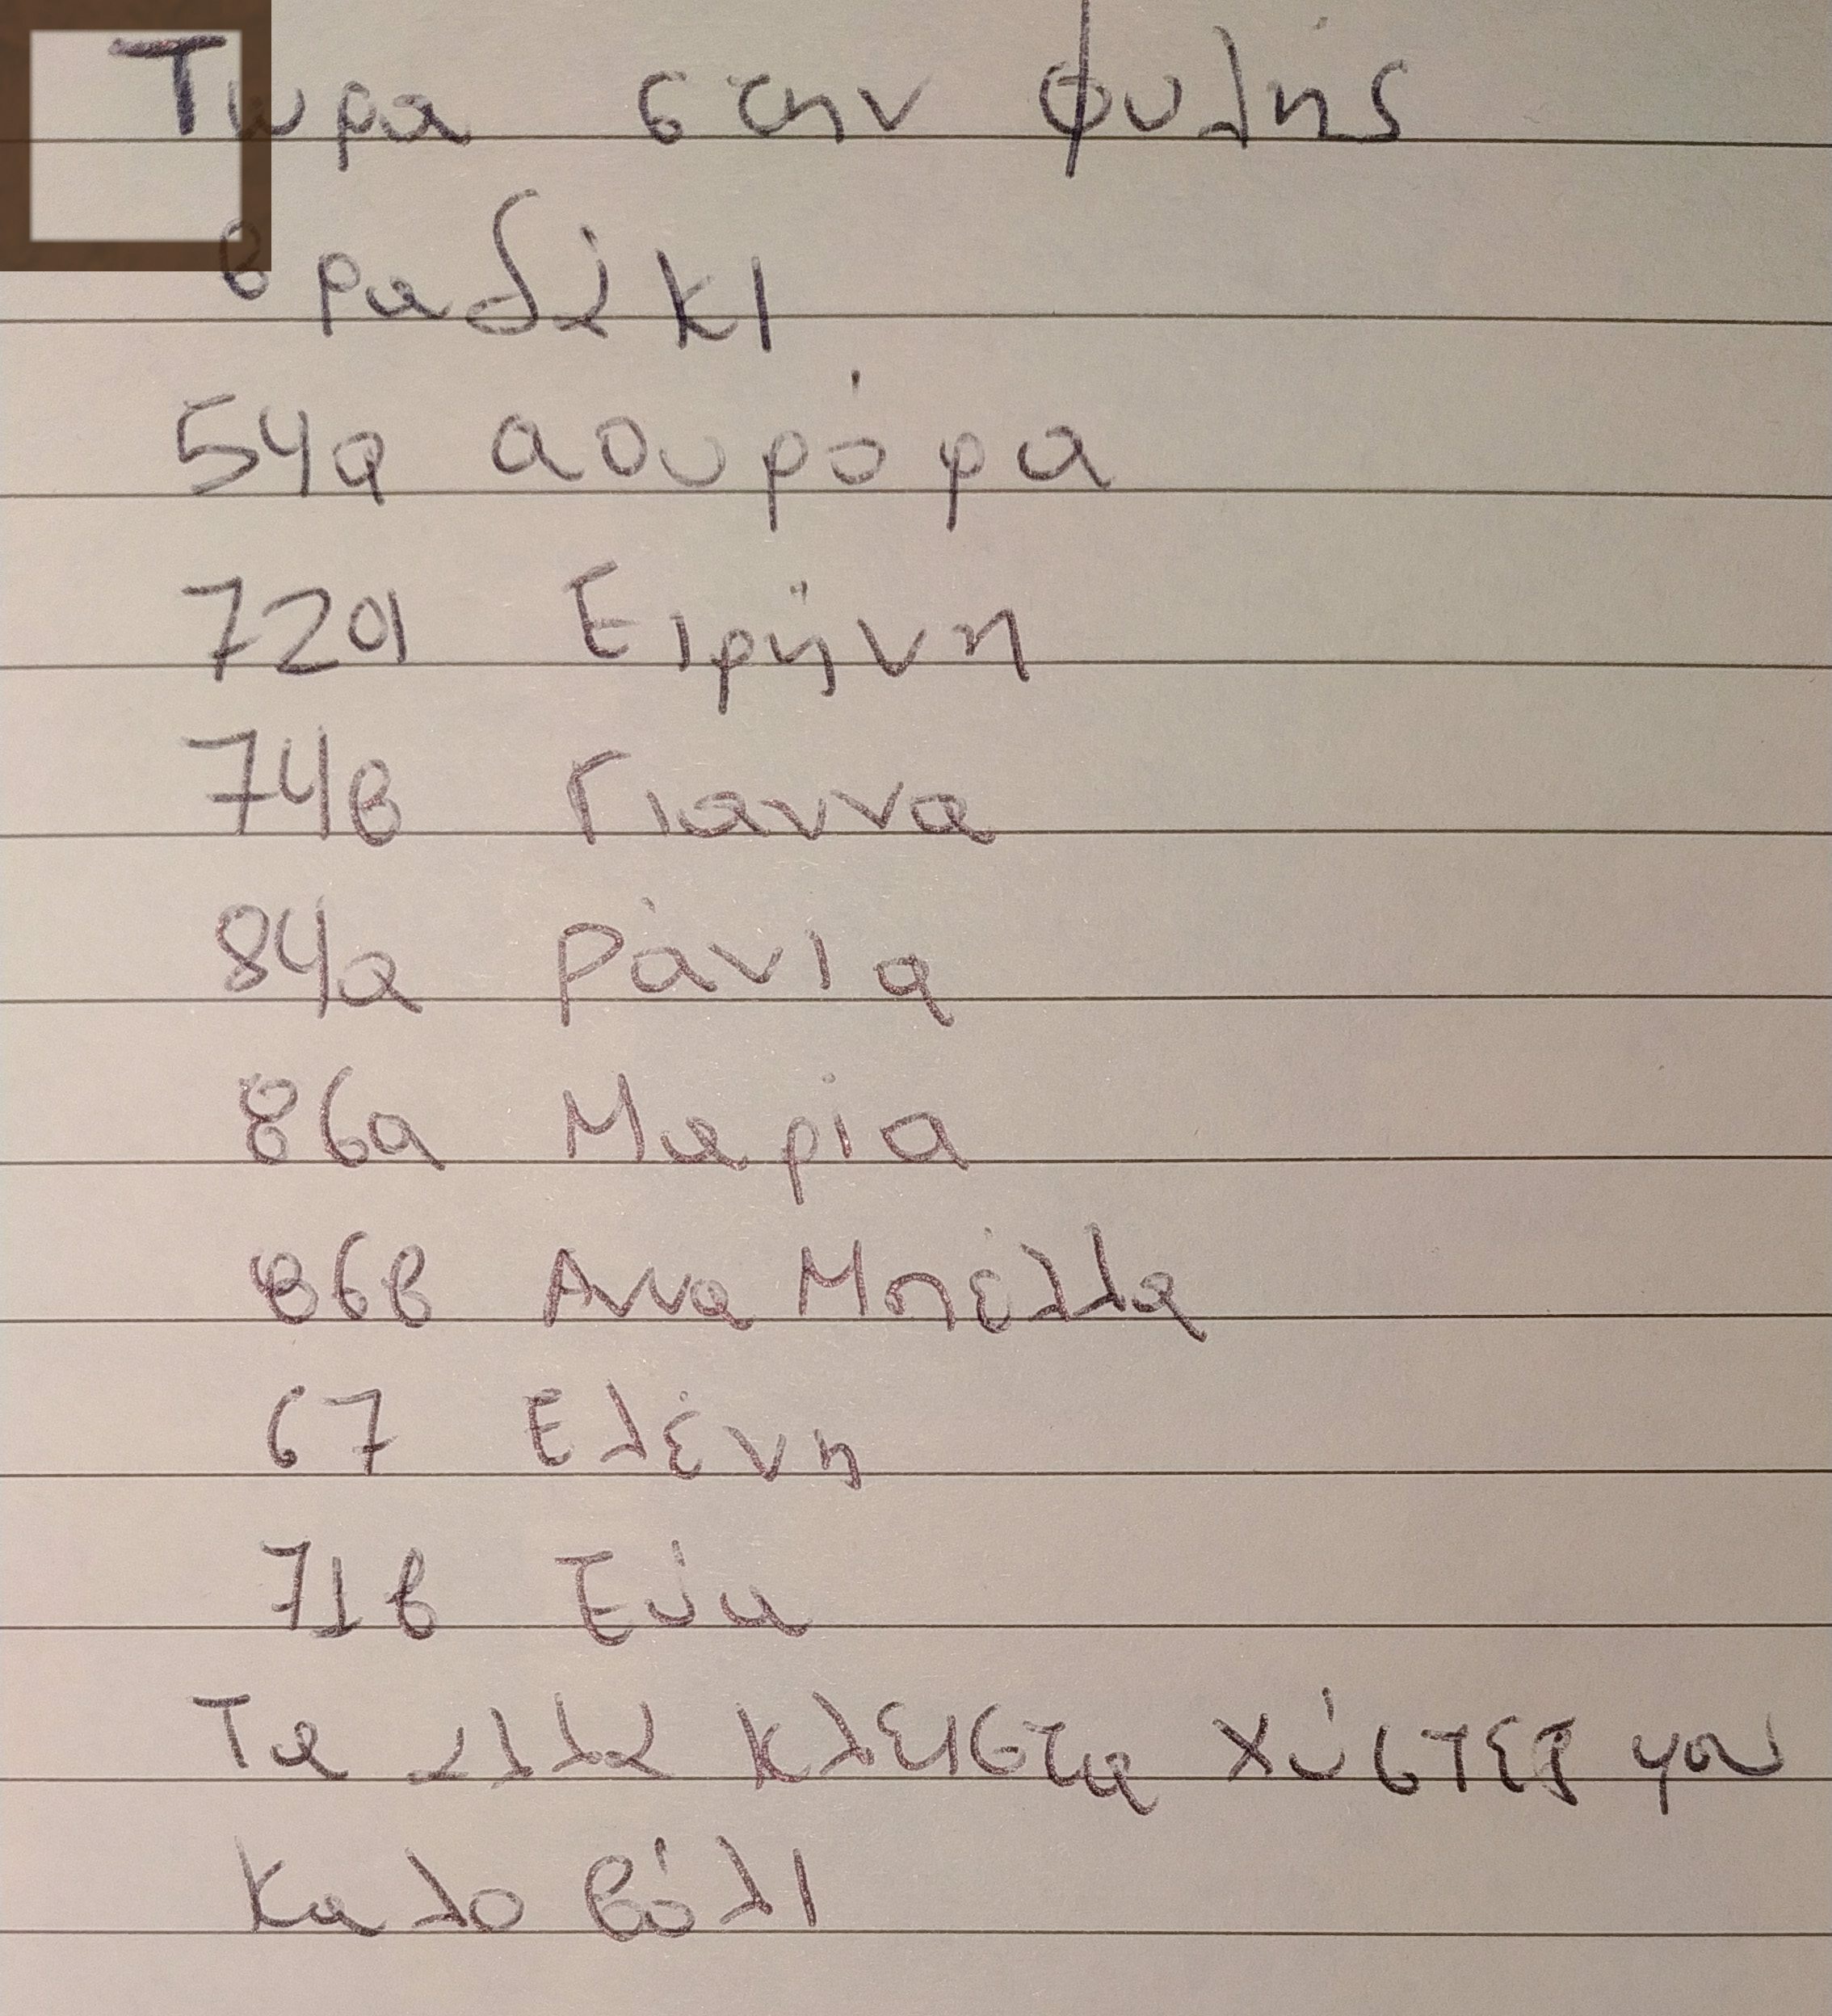 Τωρα στην φυλής
βραδάκι
54α αουρόρα
72α Ειρήνη
74β Γιαννα
84α Ράνια
86α Μαρία
86β Αννα Μπέλλα
67 Ελένη
71β Εύα
Τα αλλα κλειστα χύστερ μου
καλο βόλι